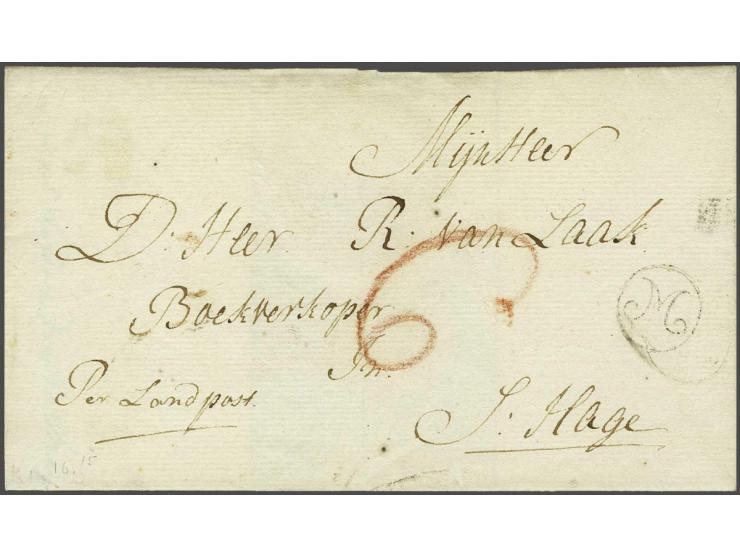 Mijn Heer
D. Heer R. van Laak
Boekverkoper
In.
S. Hage
Per Landpost.
6
M
16. 15